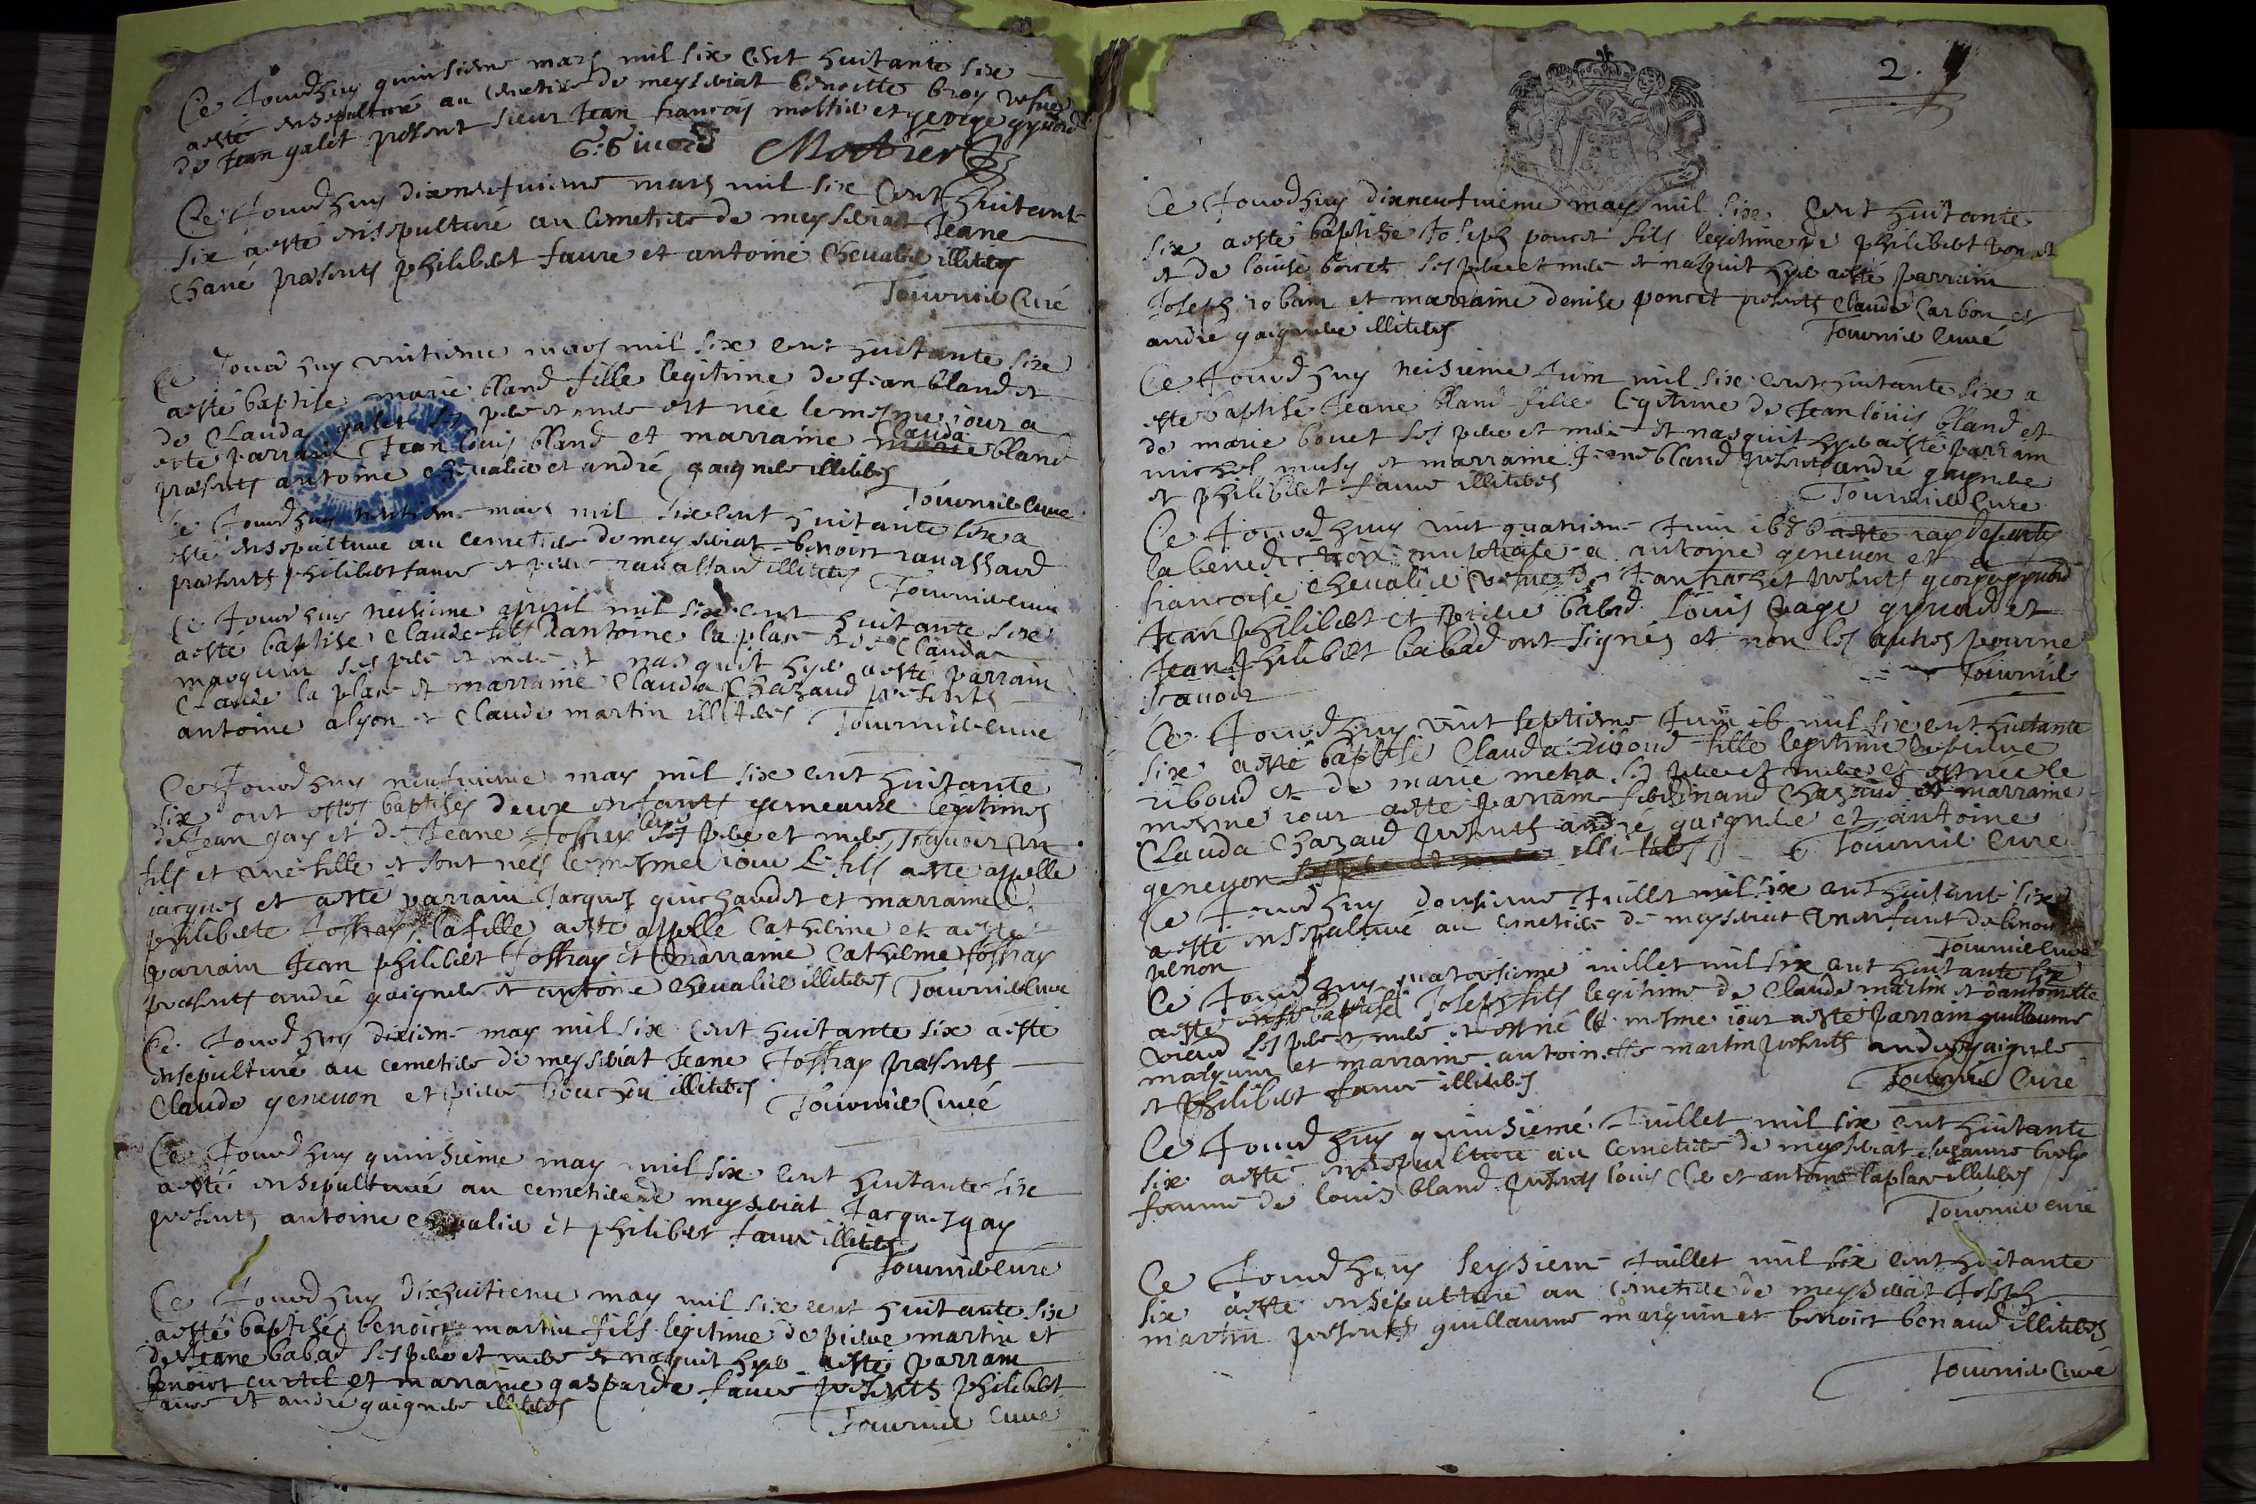 Ce Jourdhuy quinsieme mars mil six cent huitante six
a esté ensepulturé au cemetiere de meyseriat benoitte broy vefue
de Jean galet present sieur Jean francois mottier et george gyuord
G. Giuord Mottier
Ce Jourdhuy dixneufuieme mars mil six cent huitante
six a esté ensepulturé au cemetiere de meyseriat Jeane
Chané presents philibert faure et antoine Cheualier illiteres
Tournier Curé
Ce Jourdhuy vintieme mars mil six cent huitante six
a esté baptisé marie bland fille legitime de Jean bland et
de Clauda galet ses pere et mere est née le mesme iour a
esté parrain Jean louis bland et marraine Clauda bland
presents antoine cheualier et andré gaignere illiteres
Tournier Curé
Ce Jourdhuy mars mil six cent huitante six a
esté ensepulturé au cemetiere de meyseriat benoict rauassard
presents philibert faure et pierre rauassard illiteres Tournier Curé
Ce Jourdhuy apuril mil six cent huitante six
a esté baptisé Claude fils dantoine la place et de Clauda
marguin ses pere et mere et nasquit hyer a esté parrain
Claude la place et marraine Clauda Chazaud presents
antoine alyon et Claude martin illiteres Tournier Curé
Ce Jourdhuy neufuieme may mil six cent huitante
six ont estés baptisés deux enfants gemeaux legitimes
de Jean gay et de Jeane Joffray leurs pere et mere scauoir un
fils et une fille et sont nés le mesme iour le fils a esté appellé
iacques et a esté parrain Jacques guichardet et marraine
philiberte Joffray la fille a esté appellé Catherine et a esté
parrain Jean philibert Joffray et marraine Catherine Joffray
presents andré gaignere et antoine Cheualier illiteres Tournier Curé
Ce Jourdhuy dixieme may mil six cent huitante six a esté
ensepulturé au cemetiere de meyseriat Jeane Joffray presents
Claude geneuon et pierre bouchou illiteres Tournier Curé
Ce Jourdhuy quinsieme may mil six cent huitante six
a esté ensepulturé au cemetiere de meyseriat Jacques gay
presents antoine cheualier et philibert faure illiteres
Tournier Curé
Ce Jourdhuy dixhuitieme may mil six cent huitante six
a esté baptisé benoict martin fils legitime de pierre martin et
de Jeane babad ses pere et mere et nasquit hyer a esté parrain
benoict curtil et marraine gasparde faure presents philibert
faure et andré gaignere illiteres
Tournier Curé
2.
Ce Jourdhuy dixneufuieme may mil six cent huitante
six a esté baptisé Joseph poncet fils legitime de philibert poncet
et de louise borcet ses pere et mere et nasquit hyer a esté parrain
Joseph robain et marraine denise poncet presents Claude Carbon et
andré gaignere illiteres
Tournier Curé
Ce Jourdhuy Juin mil six cent huitante six a
esté baptisé Jeane bland fille legitime de Jean louis bland et
de marie bouet ses pere et mere et nasquit hyer a esté parrain
michel musy et marraine Jeane bland presents andré gaignere
et philibert faure illiteres
Tournier Curé
Ce Jourdhuy vint quatrieme Juin 1686
la benediction nuptiale a antoine geneuon et a
francoise cheualier vefue de presents george gyuord
Jean philibert et pierre babad louis page gyuord et
Jean philibert babad ont signés et non les autres pour ne
scauoir Tournier
Ce Jourdhuy vint septieme Juin mil six cent huitante
six a esté baptisé Clauda riboud fille legitime
riboud et de marie metra ses pere et mere et est née le
mesme iour a esté parrain ferdinand Chazaud et marraine
Clauda Chazaud presents andre gaignere et antoine
geneuon illiteres Tournier Curé
Ce Jourdhuy dousieme Juillet mil six cent huitante six
a esté ensepulturé au cemetiere de meyseriat un enfant de benoict
venon Tournier Curé
Ce Jourdhuy quatorsieme iuillet mil six cent huitante six
a esté baptisé Joseph fils legitime de Claude martin et dantoinette
ses pere et mere et est né le mesme iour a esté parrain guillaume
marguin et marraine antoinette martin presents andre gaignere
et philibert faure illiteres Tournier Curé
Ce Jourdhuy quinsieme Juillet mil six cent huitante
six a esté ensepulturé au cemetiere de meyseriat suzanne
femme de louis bland presents louis et antoine laplace illiteres
Tournier Curé
Ce Jourdhuy seysieme Juillet mil six cent huitante
six a esté ensepulturé au cemetiere de meyseriat Joseph
martin presents guillaume marguin et benoict benaud illiteres
Tournier Curé